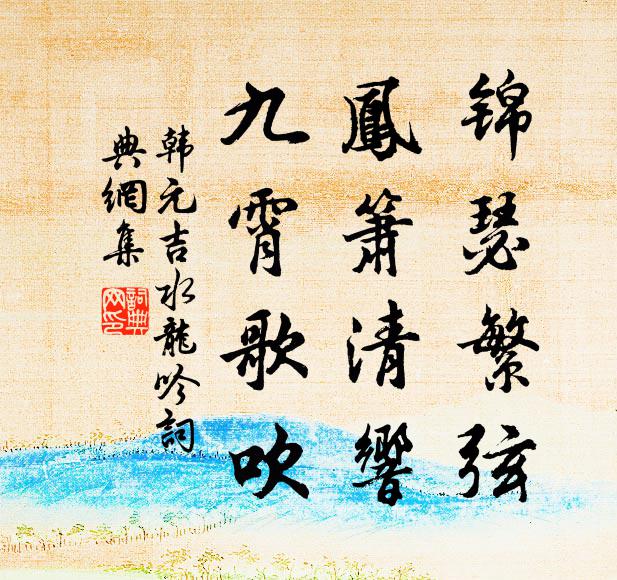 锦瑟繁弦
鳳箫清響
九霄歌吹
韩元吉水龍吟詞
典網集
詞典网印